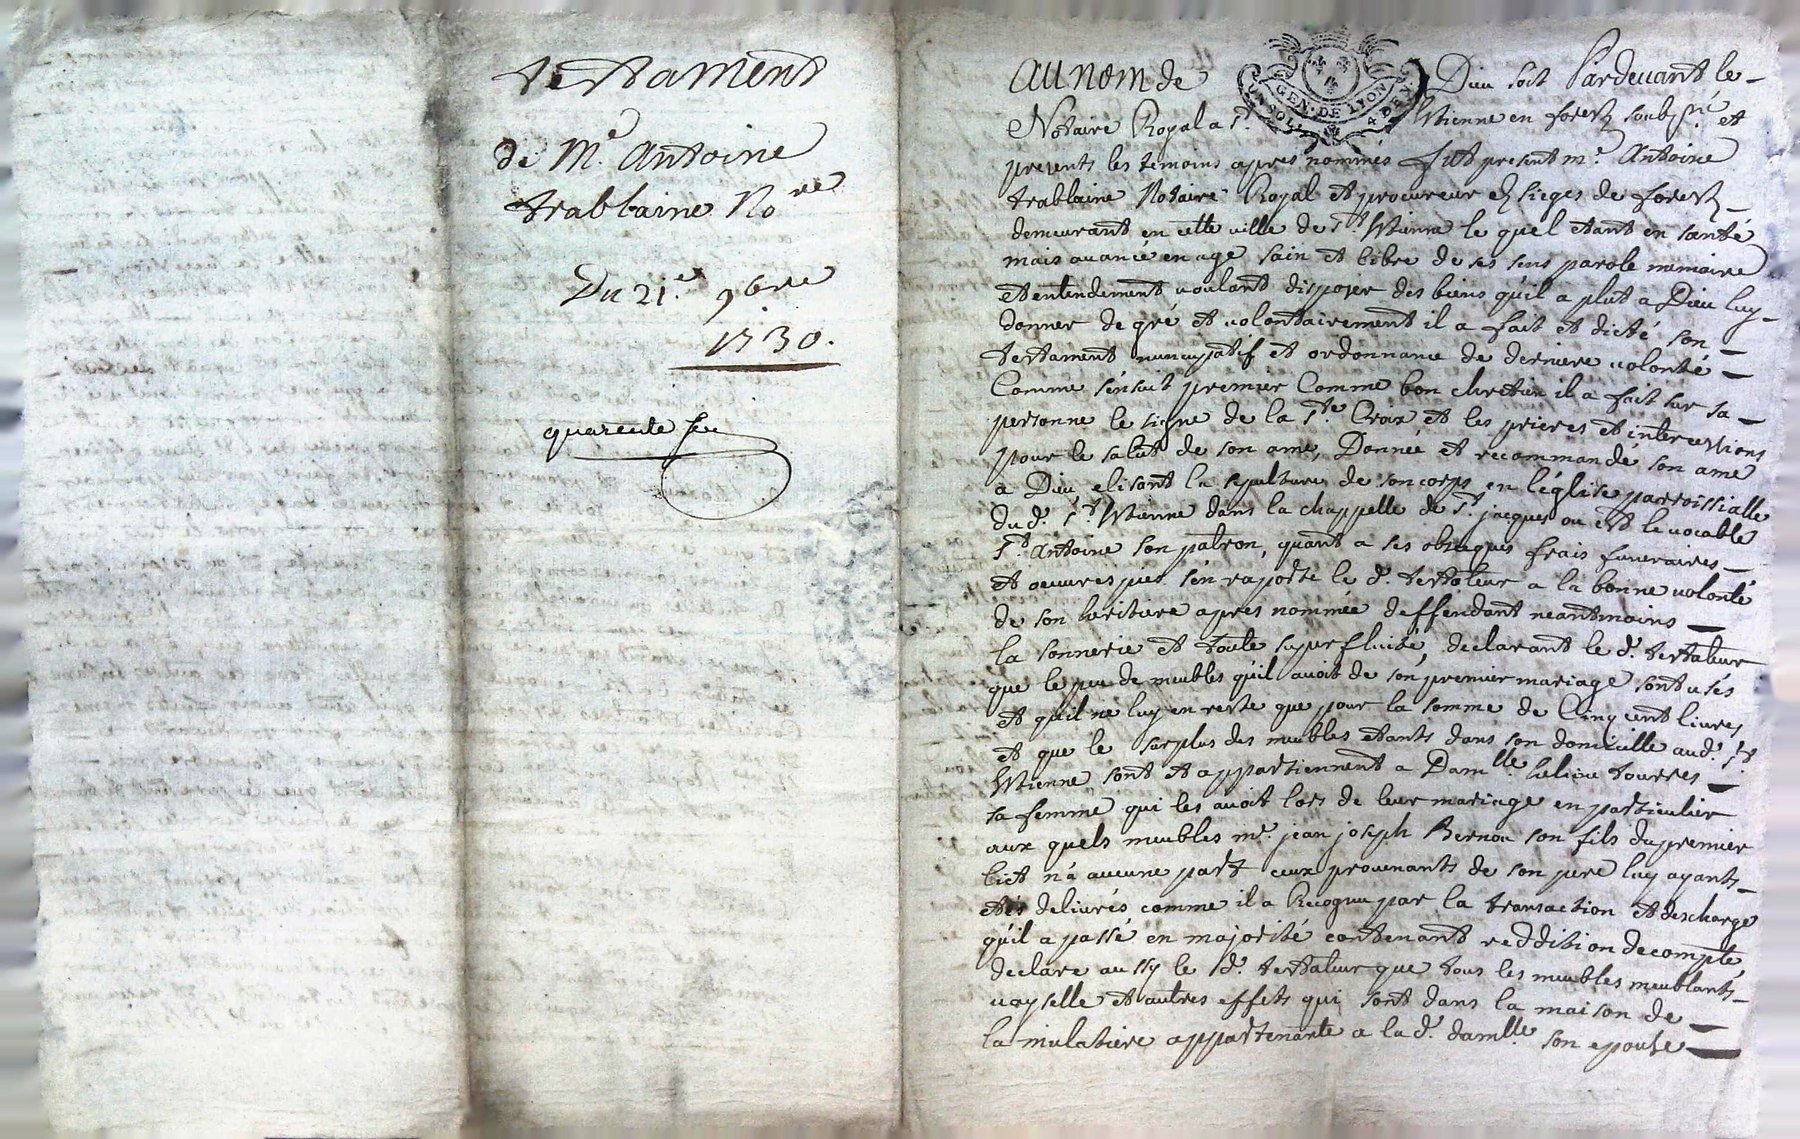 testament
de Me Antoine
trablaine Nore
Du 21e 9bre
1730.
quarente
GEN·DE LYON
UN SOL 4 DEN
au nom de Dieu soit Pardevant le
Notaire Royal a St Etienne en forest soubsné et
presents les temoins apres nommés fut present me Antoine
trablaine Notaire Royal et procureur es sieges de forest
demeurant en cette ville de St Etienne le quel etant en santé
mais avancé en age sain et libre de ses sens parole memoire
et entendement voulant disposer des biens qu'il a plut a Dieu luy
donner de gré et volontairement il a fait et dicté son
testament nuncupatif et ordonnance de derniere volonté
Comme s'ensuit premier Comme bon chretien il a fait sur sa
personne le signe de la Ste Croix et les prieres et intercessions
pour le salut de son ame, Donné et recommandé son ame
a Dieu elisant la sepulture de son corps en l'église parroissialle
du d. St Etienne dans la chappelle de St jacques ou est le vocable
St Antoine son patron, quant a ses obseques frais funeraires
et oeuvres pies s'en raporte le d. testateur a la bonne volonté
de son heritiere apres nommée deffendant neantmoins
la sonnerie et toute superfluité, declarant le d. testateur
que le peu de meubles qu'il avoit de son premier mariage sont usés
et qu'il ne luy en reste que pour la somme de Cinq cent livres
et que le surplus des meubles etants dans son domicille aud. St
Etienne sont et appartiennent a Damlle helene tourres
sa femme qui les avoit lors de leur mariage en particulier
aux quels meubles me. jean joseph Bernou son fils du premier
lict n'a aucune part ceux provenants de son pere luy ayants
etés delivrés comme il a Recognu par la transaction et descharge
qu'il a passé en majorité contenant reddition de compte
declare aussy le sd. testateur que tous les meubles meublants
vayselle et autres effets qui sont dans la maison de
la mulatiere appartenante a la d. damlle son epouse